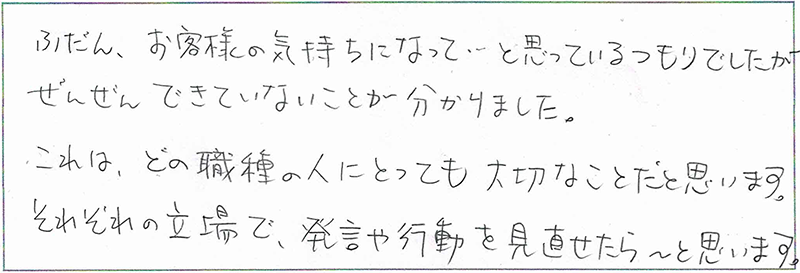 ふだん、お客様の気持ちになって‥と思っているつもりでしたが
ぜんぜんできていないことが分かりました。
これは、どの職種の人にとっても大切なことだと思います。
それぞれの立場で、発言や行動を見直せたら～と思います。